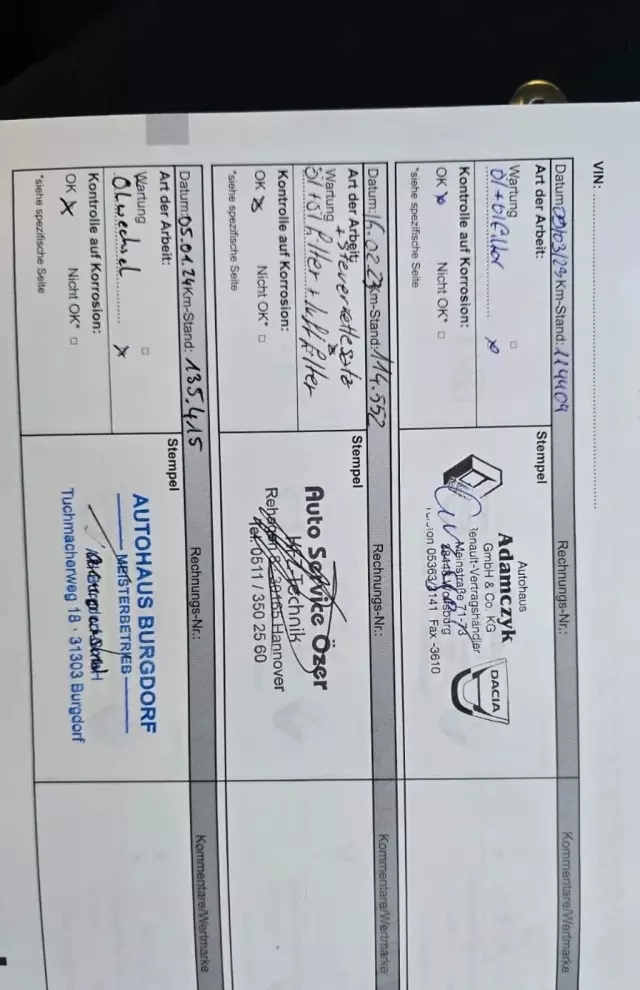 VIN:
Datum: 09/03/23 Km-Stand: 114409
Rechnungs-Nr.:
Kommentare/Wertmarke
Art der Arbeit:
Wartung
Öl + Ölfilter
Kontrolle auf Korrosion:
OK Nicht OK*
*siehe spezifische Seite
Stempel
Autohaus
Adamczyk
GmbH & Co. KG
Renault-Vertragshändler
Meinstraße 71-73
Wolfsburg
05363/3141 Fax -3610
DACIA
Datum: 16.02.23 Km-Stand: 114.552
Rechnungs-Nr.:
Kommentare/Wertmarke
Art der Arbeit:
+ Steuerkettesatz
Wartung
Öl + Öl filter + luft filter
Kontrolle auf Korrosion:
OK Nicht OK*
*siehe spezifische Seite
Stempel
Auto Service Özer
Kfz Technik
30165 Hannover
Tel. 0511 / 350 25 60
Datum: 05.01.24 Km-Stand: 135.415
Rechnungs-Nr.:
Kommentare/Wertmarke
Art der Arbeit:
Wartung
Ölwechsel
Kontrolle auf Korrosion:
OK Nicht OK*
*siehe spezifische Seite
Stempel
AUTOHAUS BURGDORF
MEISTERBETRIEB
Tuchmacherweg 18 · 31303 Burgdorf